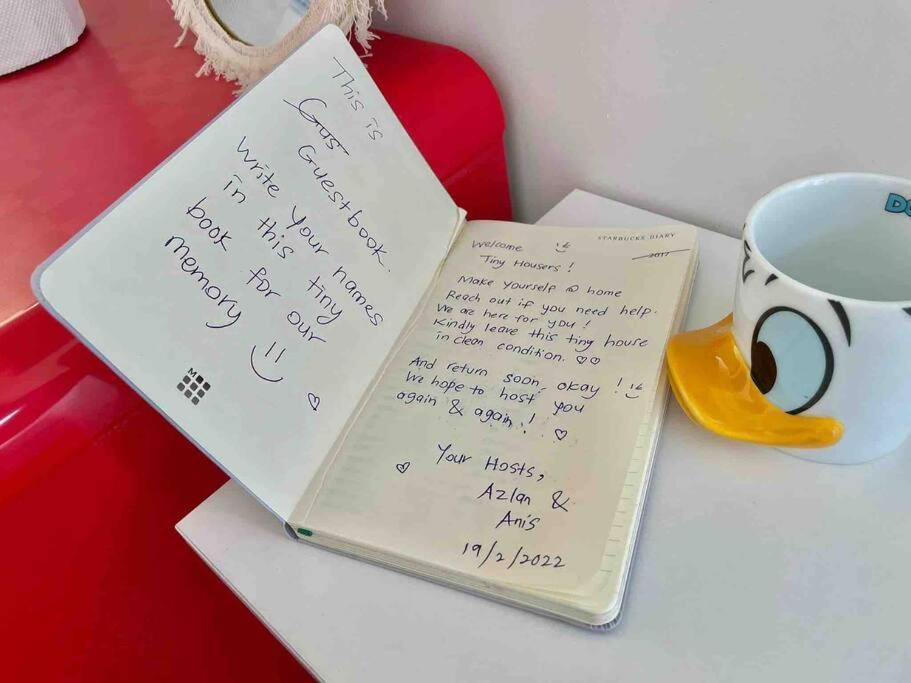 This is
Gus
Guestbook.
Write your names
in this tiny
book for our
memory
M
Welcome
Tiny Housers!
STARBUCKS DIARY
2017
Make yourself @ home
Reach out if you need help.
We are here for you!
Kindly leave this tiny house
in clean condition.
And return soon, okay!
We hope to host you
again & again!
Your Hosts,
Azlan &
Anis
19/2/2022